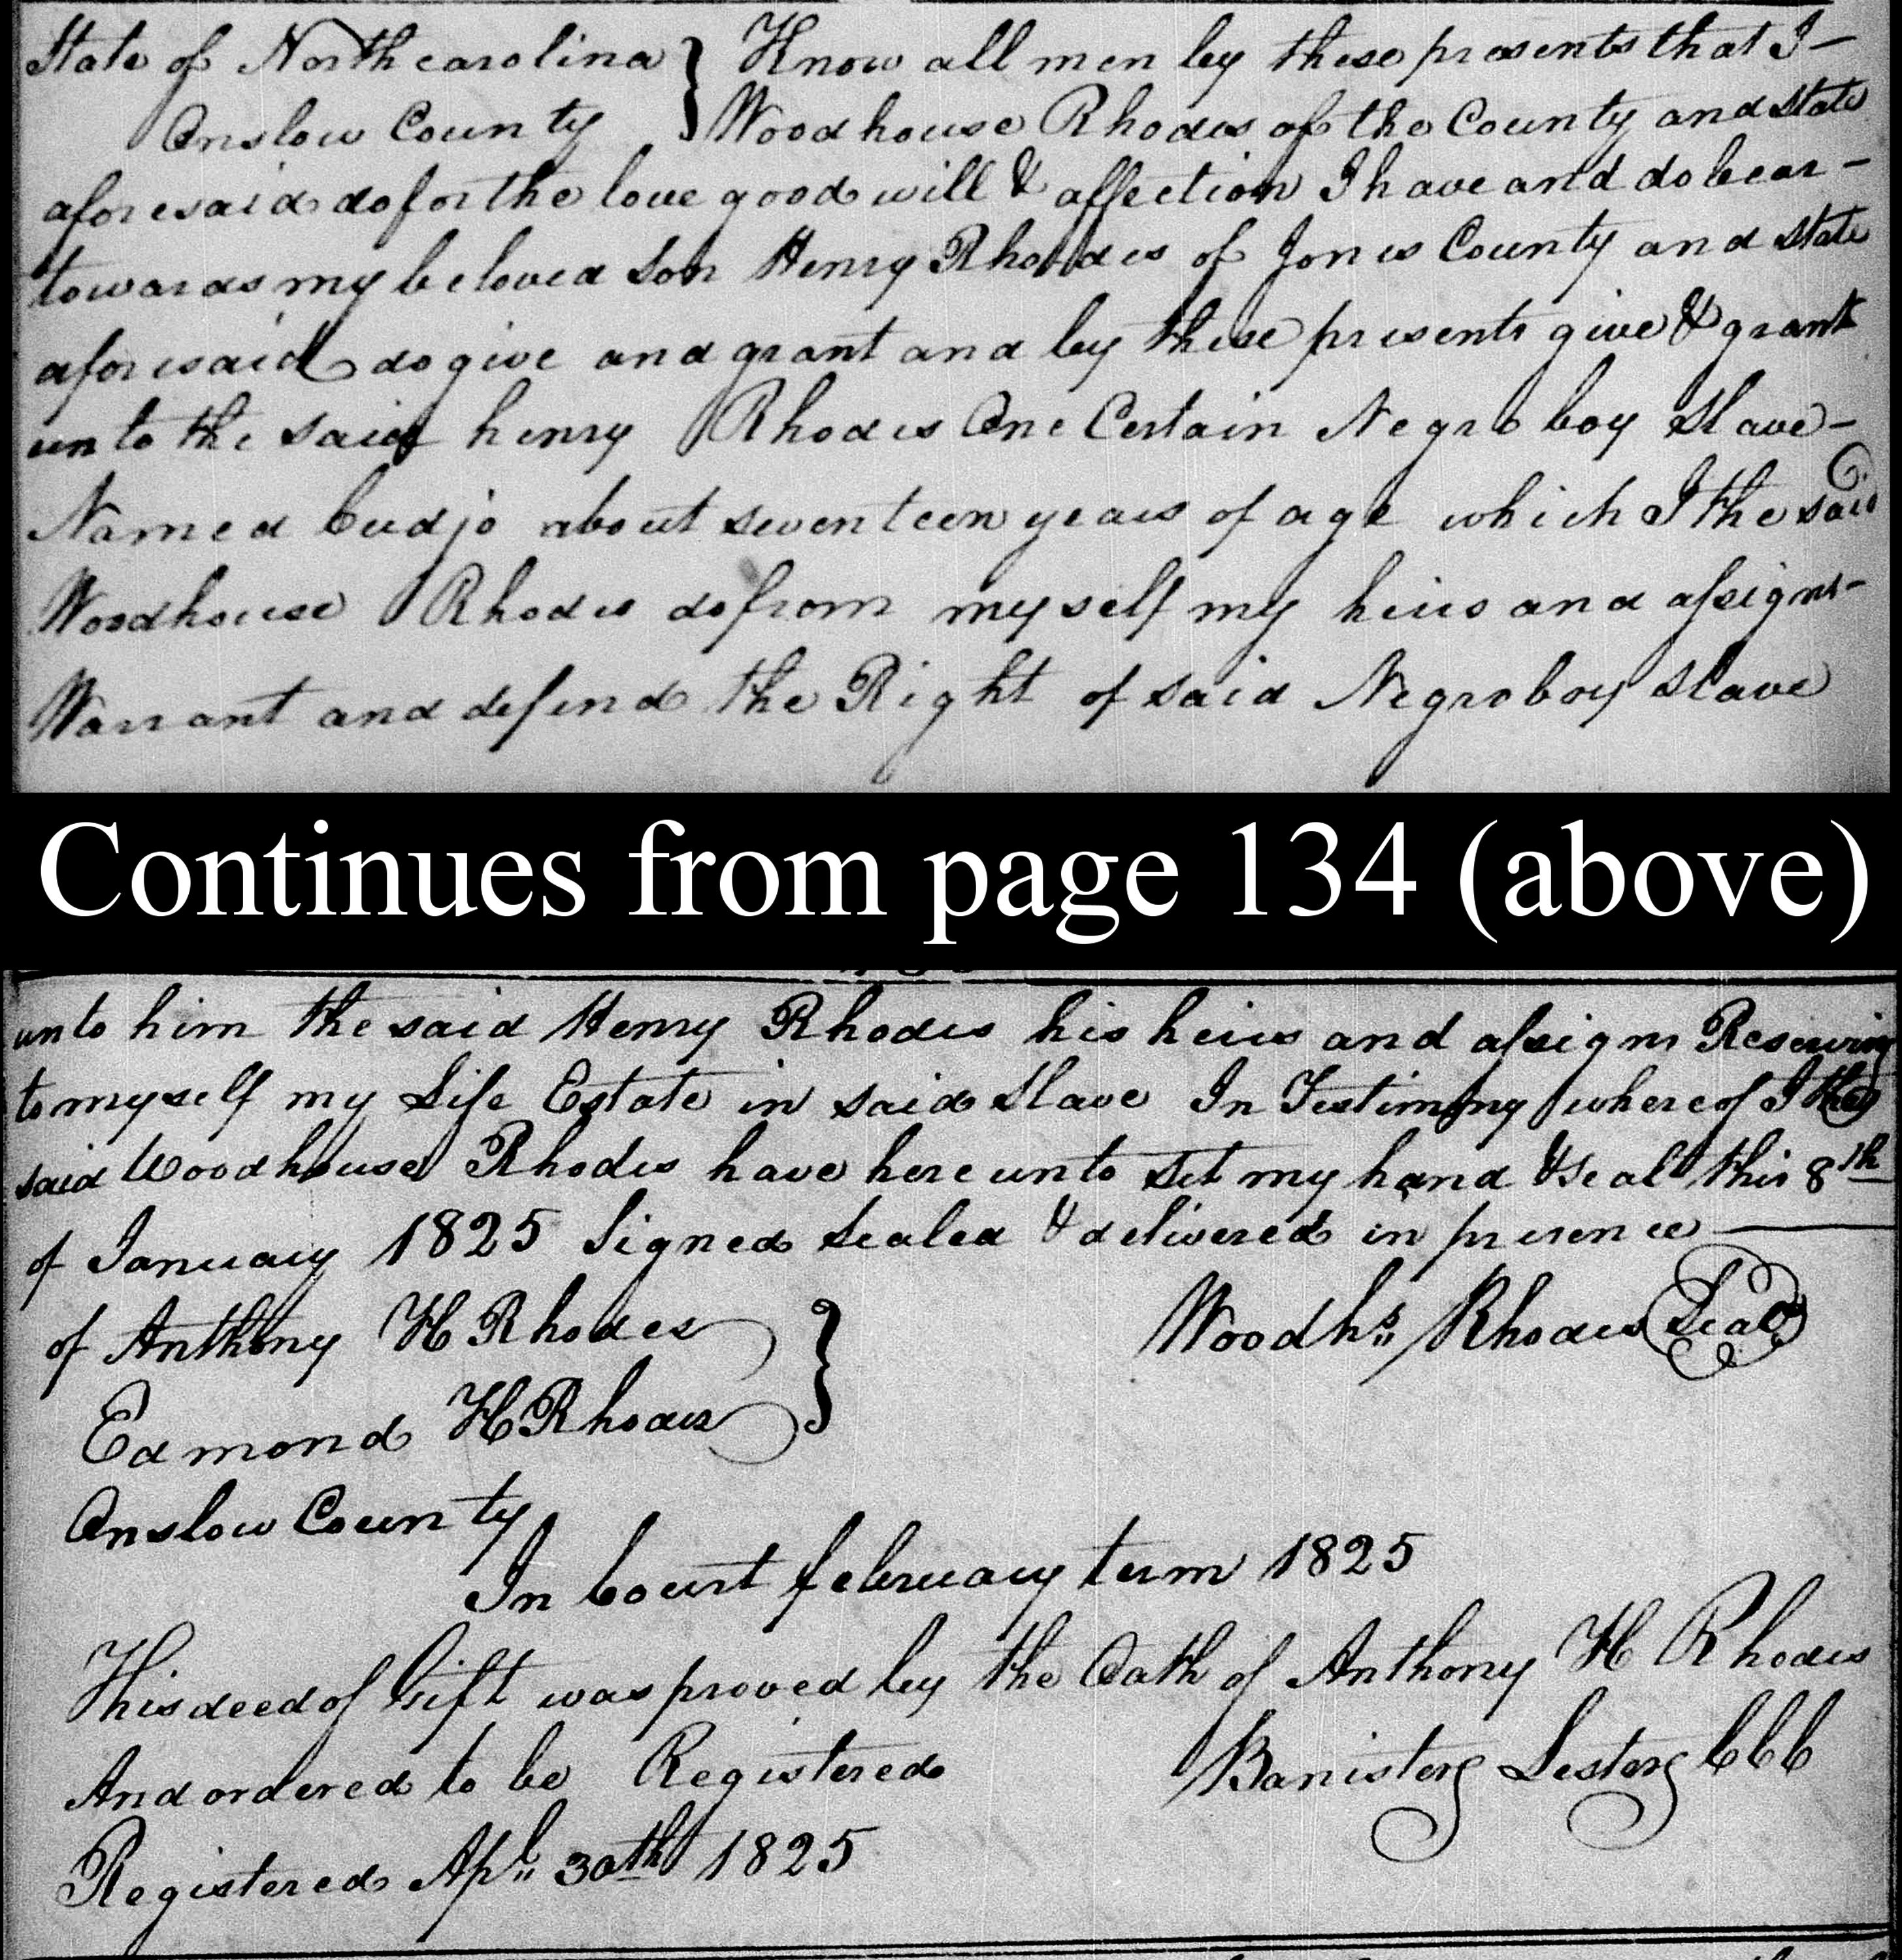 State of North carolina } Know all men by these presents that I –
Onslow County } Woodhouse Rhodes of the County and State
aforesaid do for the love good will & affection I have and do bear –
towards my beloved Son Henry Rhodes of Jones County and State
aforesaid do give and grant and by these presents give & grant
unto the said henry Rhodes One Certain Negro boy Slave –
Named Cudjo about seventeen years of age which I the said
Woodhouse Rhodes do from myself my heirs and assigns –
Warrant and defend the Right of said Negro boy Slave
Continues from page 134 (above)
unto him the said Henry Rhodes his heirs and assigns Reserving
to myself my Life Estate in said Slave In Testimony whereof I the
said Woodhouse Rhodes have here unto Set my hand & Seal this 8th
of January 1825 Signed Sealed & delivered in presence
of Anthony H Rhodes } Woodhs. Rhodes Seal
Edmond H Rhodes
Onslow County
In Court february term 1825
This deed of Gift was proved by the Oath of Anthony H Rhodes
And ordered to be Registered Banister Lester CCC
Registered Apl. 30th 1825